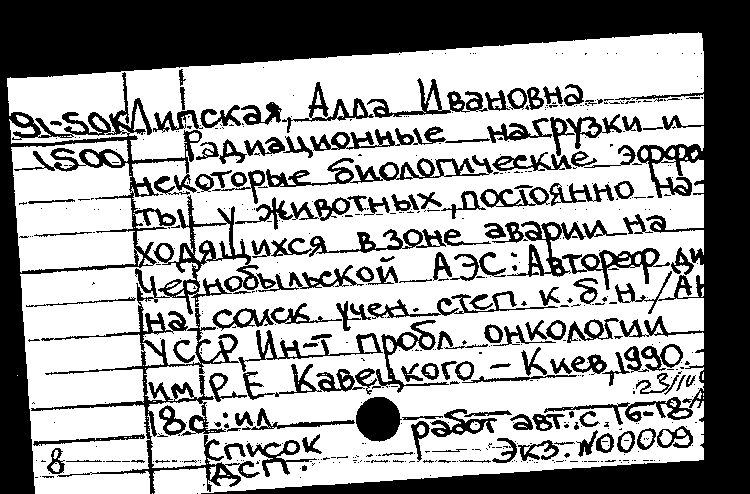 91-50к Липская, Алла Ивановна
1500 Радиационные нагрузки и
некоторые биологические эффе
ты у животных, постоянно на-
ходящихся в зоне аварии на
Чернобыльской АЭС: Автореф. ди
на соиск. учен. степ. к.б.н. / АН
УССР, Ин-т пробл. онкологии
им. Р.Е. Кавецкого. – Киев, 1990. –
18с.: ил.
список работ авт.: с. 16-18
8 ДСП. Экз. №00009